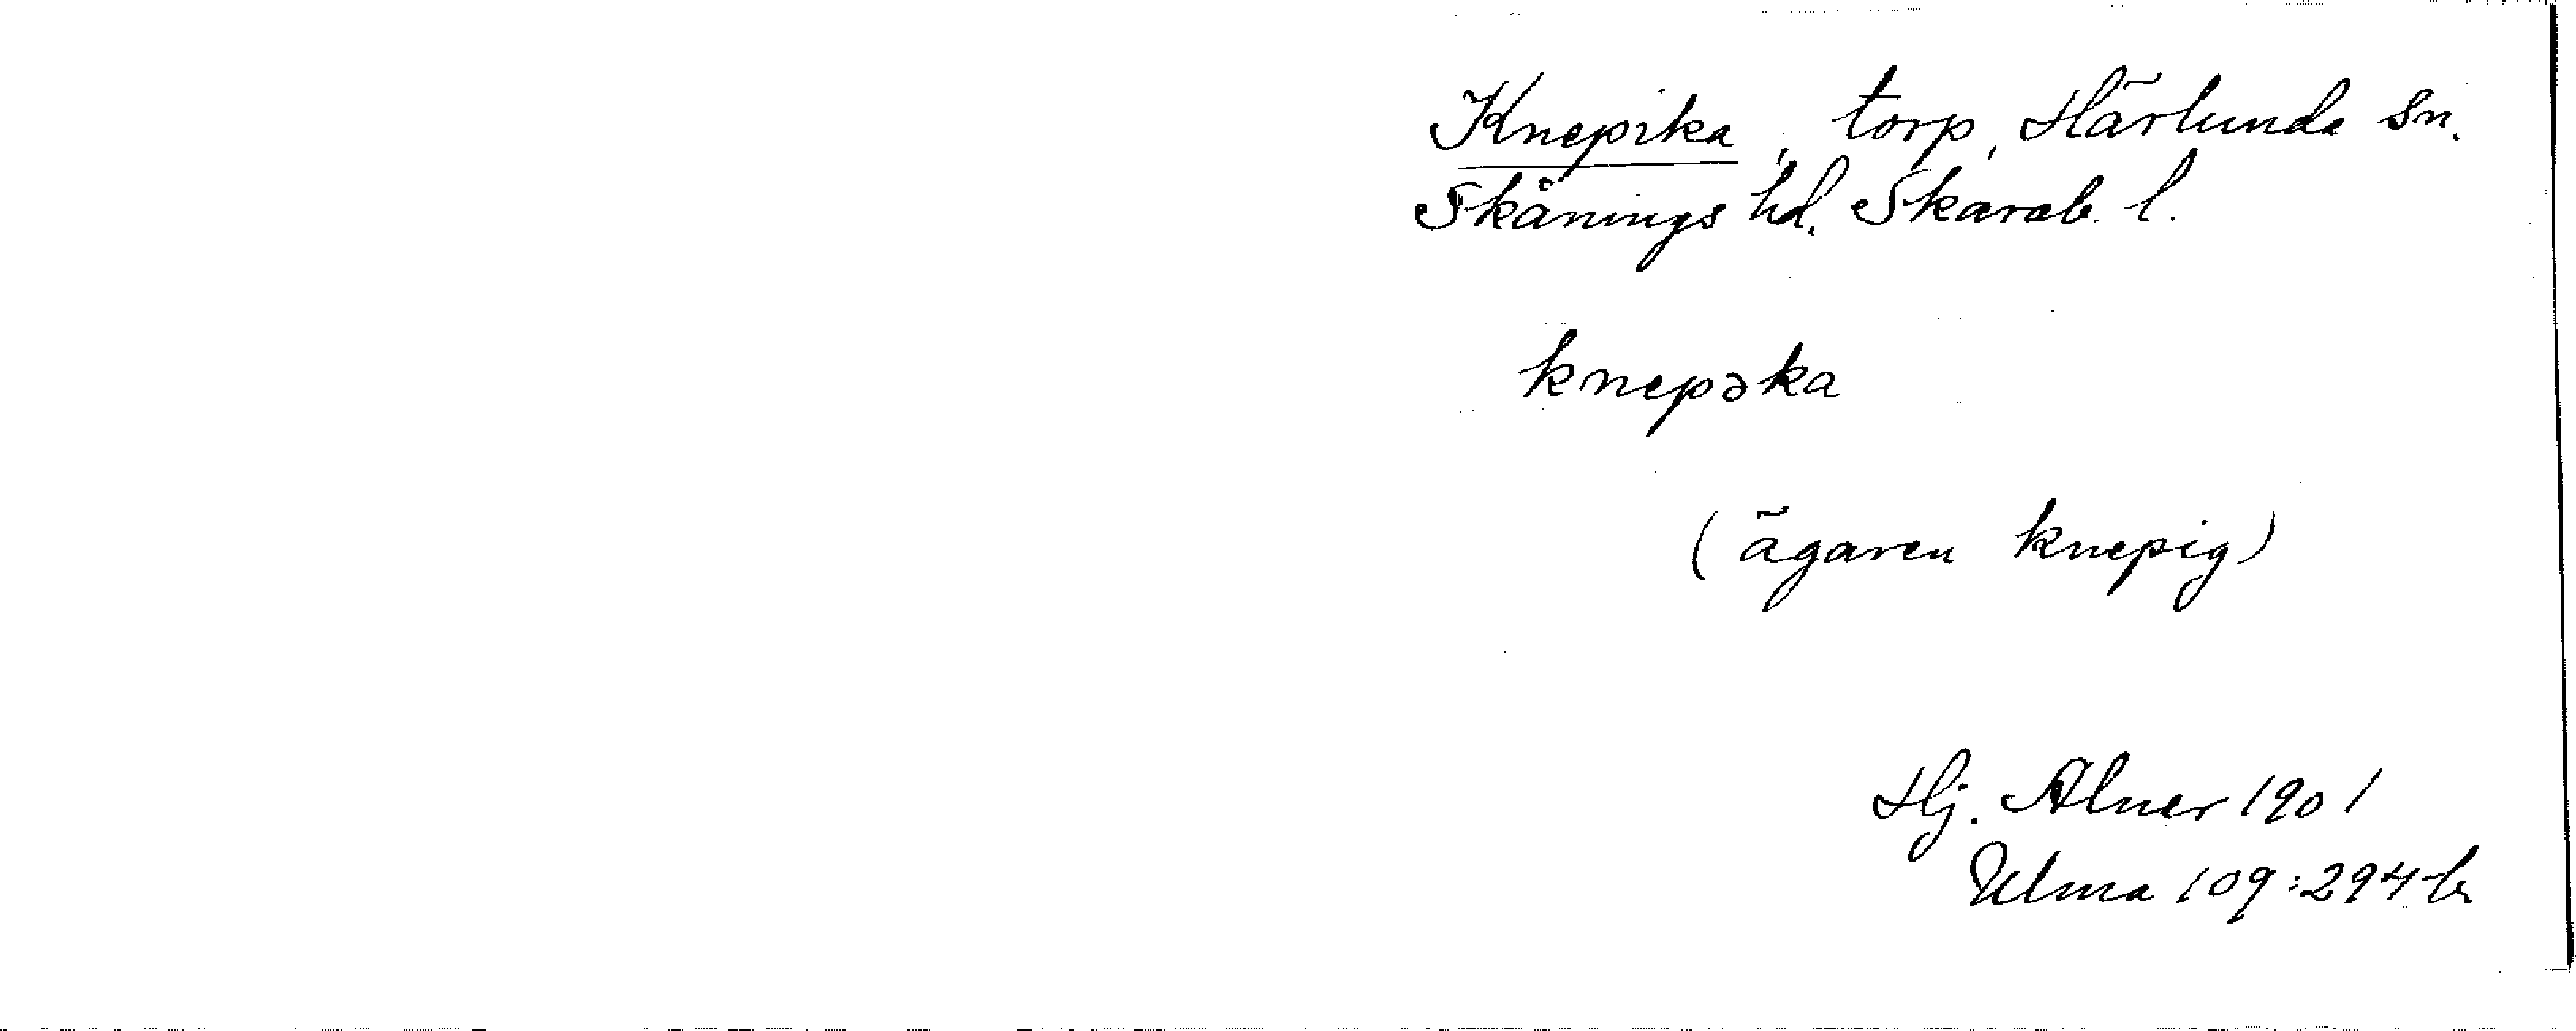 Knepika, torp, Härlunda sn.
Skånings hd. Skarab. l.
knepəka
(ägaren knepig)
Hj. Alner 1901
Ulma 109:294 b